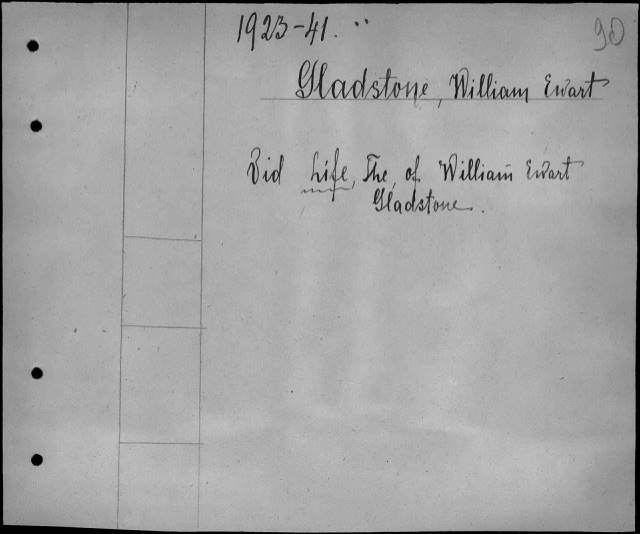 1923-41. "
90
Gladstone, William Ewart
Vid Life, The, of William Ewart
Gladstone.